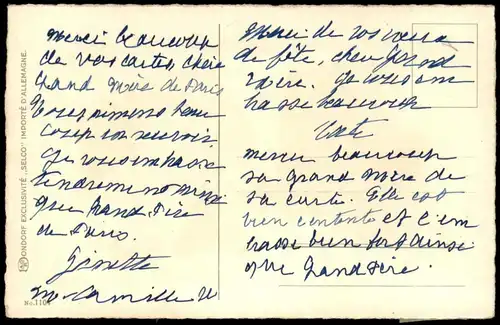 Merci beaucoup
de vos cartes, chère
Grand Mère de Paris
Nous aimons beau
coup
Je vous embrasse
tendrement
que Grand Père
de Paris.
Ginette
Camille
Merci de vos vœux
de fête, cher Grand
Père. Je vous em
brasse beaucoup
merci beaucoup
sa grand mère de
sa carte. Elle est
bien contente et l'em
brasse bien fort ainsi
que Grand Père.
ONDORF EXCLUSIVITÉ „SELCO" IMPORTÉ D'ALLEMAGNE.
No. 110